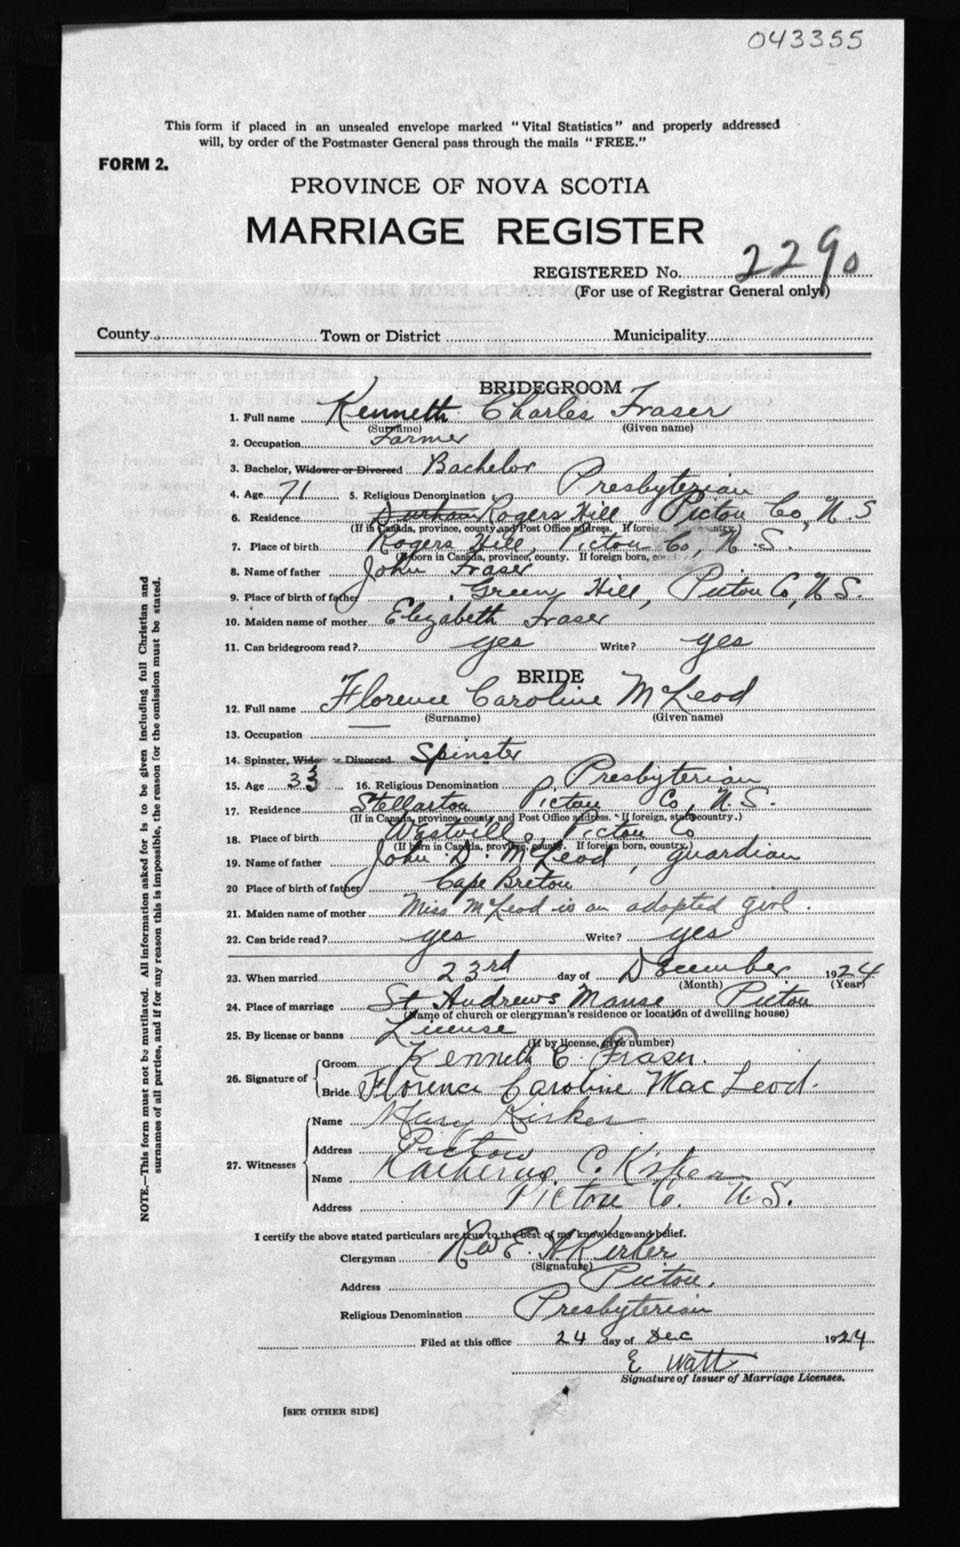 043355
This form if placed in an unsealed envelope marked "Vital Statistics" and properly addressed
will, by order of the Postmaster General pass through the mails "FREE."
FORM 2.
PROVINCE OF NOVA SCOTIA
MARRIAGE REGISTER
REGISTERED No. 2290
(For use of Registrar General only.)
County Town or District Municipality
BRIDEGROOM
1. Full name Kenneth Charles Fraser
(Surname) (Given name)
2. Occupation Farmer
3. Bachelor, Widower or Divorced Bachelor
4. Age 71 5. Religious Denomination Presbyterian
6. Residence Durham Rogers Hill Pictou Co, N.S
(If in Canada, province, county and Post Office address. If foreign, country.)
7. Place of birth Rogers Hill, Pictou Co, N.S.
(If born in Canada, province, county. If foreign born,
8. Name of father John Fraser
9. Place of birth of father Green Hill, Pictou Co, N.S.
10. Maiden name of mother Elizabeth Fraser
11. Can bridegroom read? yes Write? yes
BRIDE
12. Full name Florence Caroline McLeod
(Surname) (Given name)
13. Occupation —
14. Spinster, Widow or Divorced Spinster
15. Age 33 16. Religious Denomination Presbyterian
17. Residence Stellarton Pictou Co, N.S.
(If in Canada, province, county and Post Office address. If foreign, state country.)
18. Place of birth Westville, Pictou Co
(If born in Canada, province, county. If foreign born, country.)
19. Name of father John D. McLeod, guardian
20 Place of birth of father Cape Breton
21. Maiden name of mother Miss McLeod is an adopted girl.
22. Can bride read? yes Write? yes
23. When married 23rd day of December 1924
(Month) (Year)
24. Place of marriage St Andrews Manse Pictou
(Name of church or clergyman's residence or location of dwelling house)
25. By license or banns License
(If by license, give number)
26. Signature of Groom Kenneth C. Fraser.
Bride Florence Caroline MacLeod.
27. Witnesses
Name Mary Kirker
Address Pictou
Name Katherine C. Kirker
Address Pictou Co. N.S.
I certify the above stated particulars are true to the best of my knowledge and belief.
Clergyman Rev E. A. Kirker
(Signature)
Address Pictou,
Religious Denomination Presbyterian
Filed at this office 24 day of Dec 1924
E Watt
Signature of Issuer of Marriage Licenses.
[SEE OTHER SIDE]
NOTE.—This form must not be mutilated. All information asked for is to be given including full Christian and
surnames of all parties, and if for any reason this is impossible, the reason for the omission must be stated.